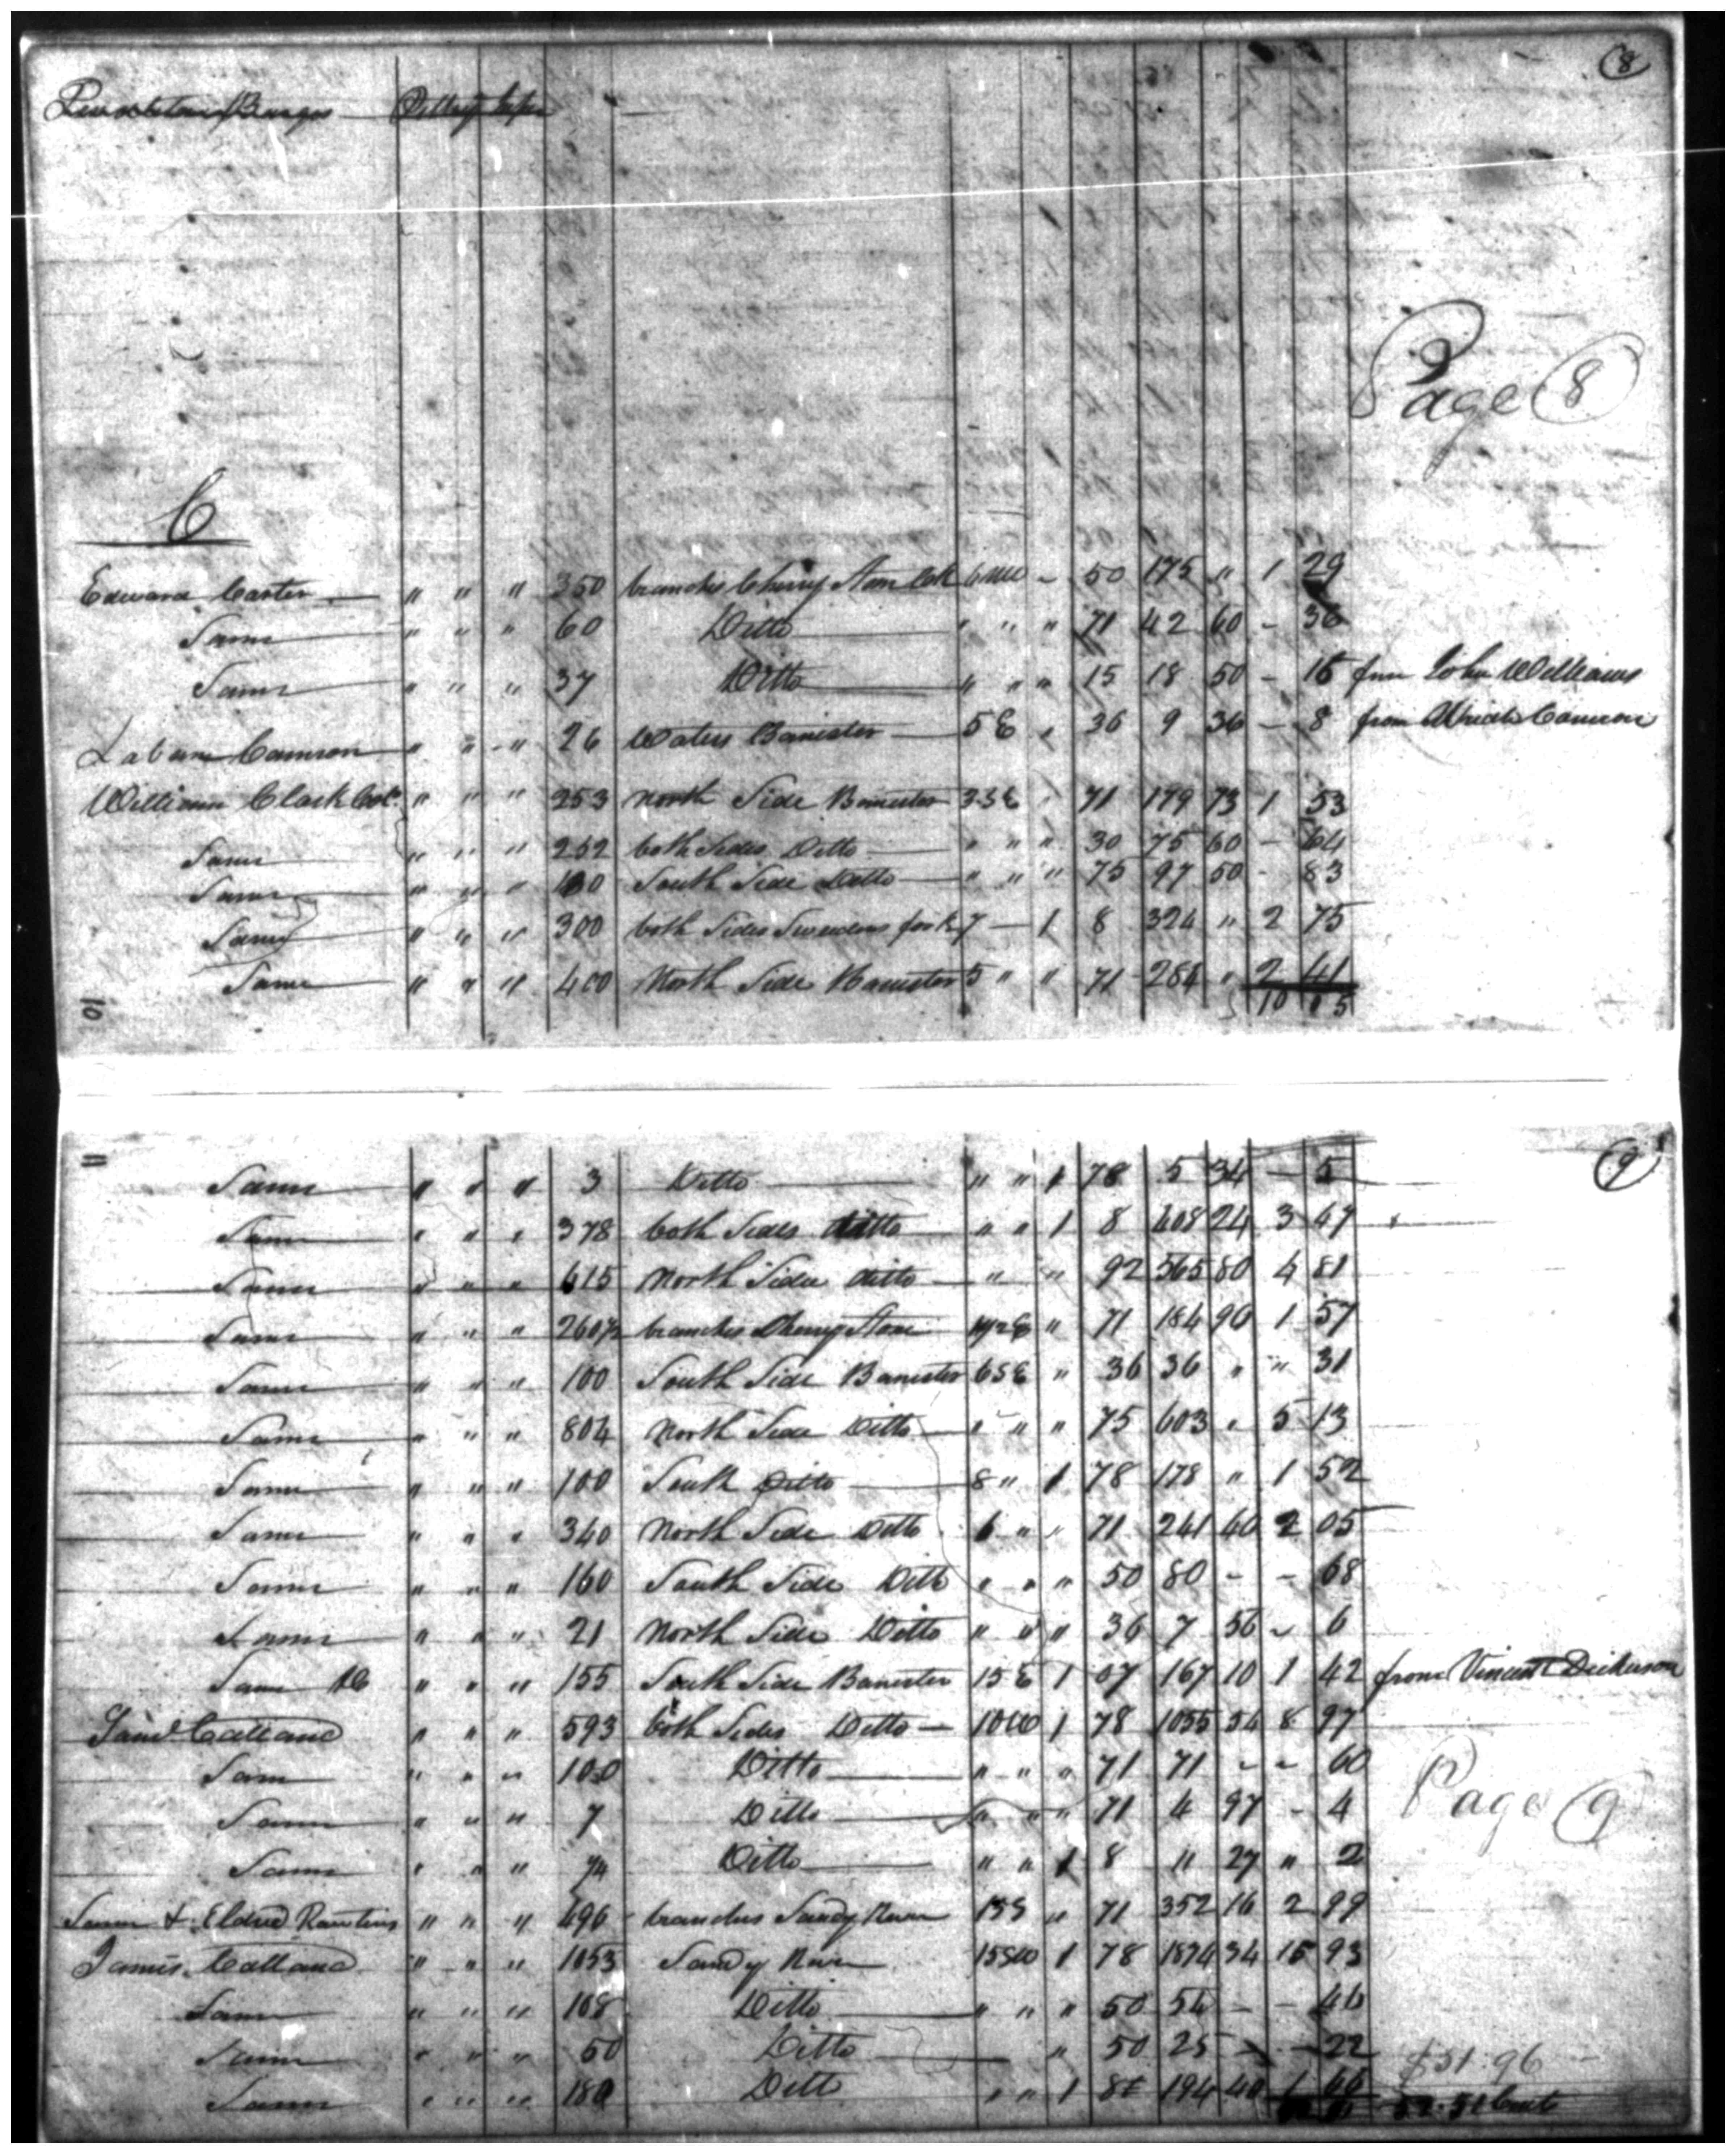 8
Page 8
C
Edward Carter " " " 350 branches Cherry Stone Cck 6 " 50 175 " 1 29
Same " " " 60 Ditto " " " 71 42 60 - 36
Same " " " 37 Ditto " " " 15 18 50 - 16 from John Williams
Laban " " " 26 Waters Banister 5 E " 36 9 36 - 8 from
William Clark Col. " " " 253 North Side Banister 3 S E " 71 179 73 1 53
Same " " " 252 both Sides Ditto " " " 30 75 60 - 64
Same " " " 130 South Side Ditto " " " 75 97 50 - 83
Same " " " 300 both Sides fork 7 - 1 8 324 " 2 75
Same " " " 400 North Side Banister 5 " " 71 284 " 2 41
10 10 05
11 9
Same " " " 3 Ditto " " 1 78 5 34 - 5
Same " " " 378 both Sides ditto " " 1 8 408 24 3 47
Same " " " 615 North Side ditto " " 92 565 80 4 81
Same " " " 260½ branches Cherry Stone " 71 184 90 1 57
Same " " " 100 South Side Banister 6 S E " 36 36 " " 31
Same " " " 804 North Side Ditto " " " 75 603 " 5 13
Same " " " 100 South Ditto 8 " 1 78 178 " 1 52
Same " " " 340 North Side Ditto 6 " " 71 241 40 2 05
Same " " " 160 South Side Ditto " " " 50 80 - - 68
Same " " " 21 North Side Ditto " " " 36 7 56 - 6
Same " " " 155 South Side Banister 15 E 1 07 167 10 1 42 from Vincent Dickerson
Calland " " " 593 both Sides Ditto 10 W 1 78 1055 54 8 97
Same " " " 100 Ditto " " " 71 71 - - 60
Same " " " 7 Ditto " " 71 4 97 - 4
Page 9
Same " " " Ditto " " 1 8 " 27 " 2
Same & Eldred Rawlins " " " 496 branches Sandy River 15 S " 71 352 16 2 99
James Calland " " " 1053 Sandy River 15 SW 1 78 1874 34 15 93
Same " " " 108 Ditto " " " 50 54 - - 46
Same " " " 50 Ditto " 50 25 - - 22 $51.96
Same " " " 180 Ditto " " 1 8 194 40 1 52.51 Cents